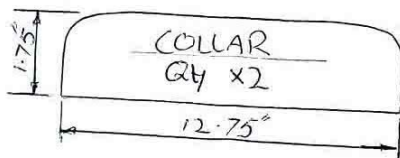 1.75"
COLLAR
QTY x2
12.75"